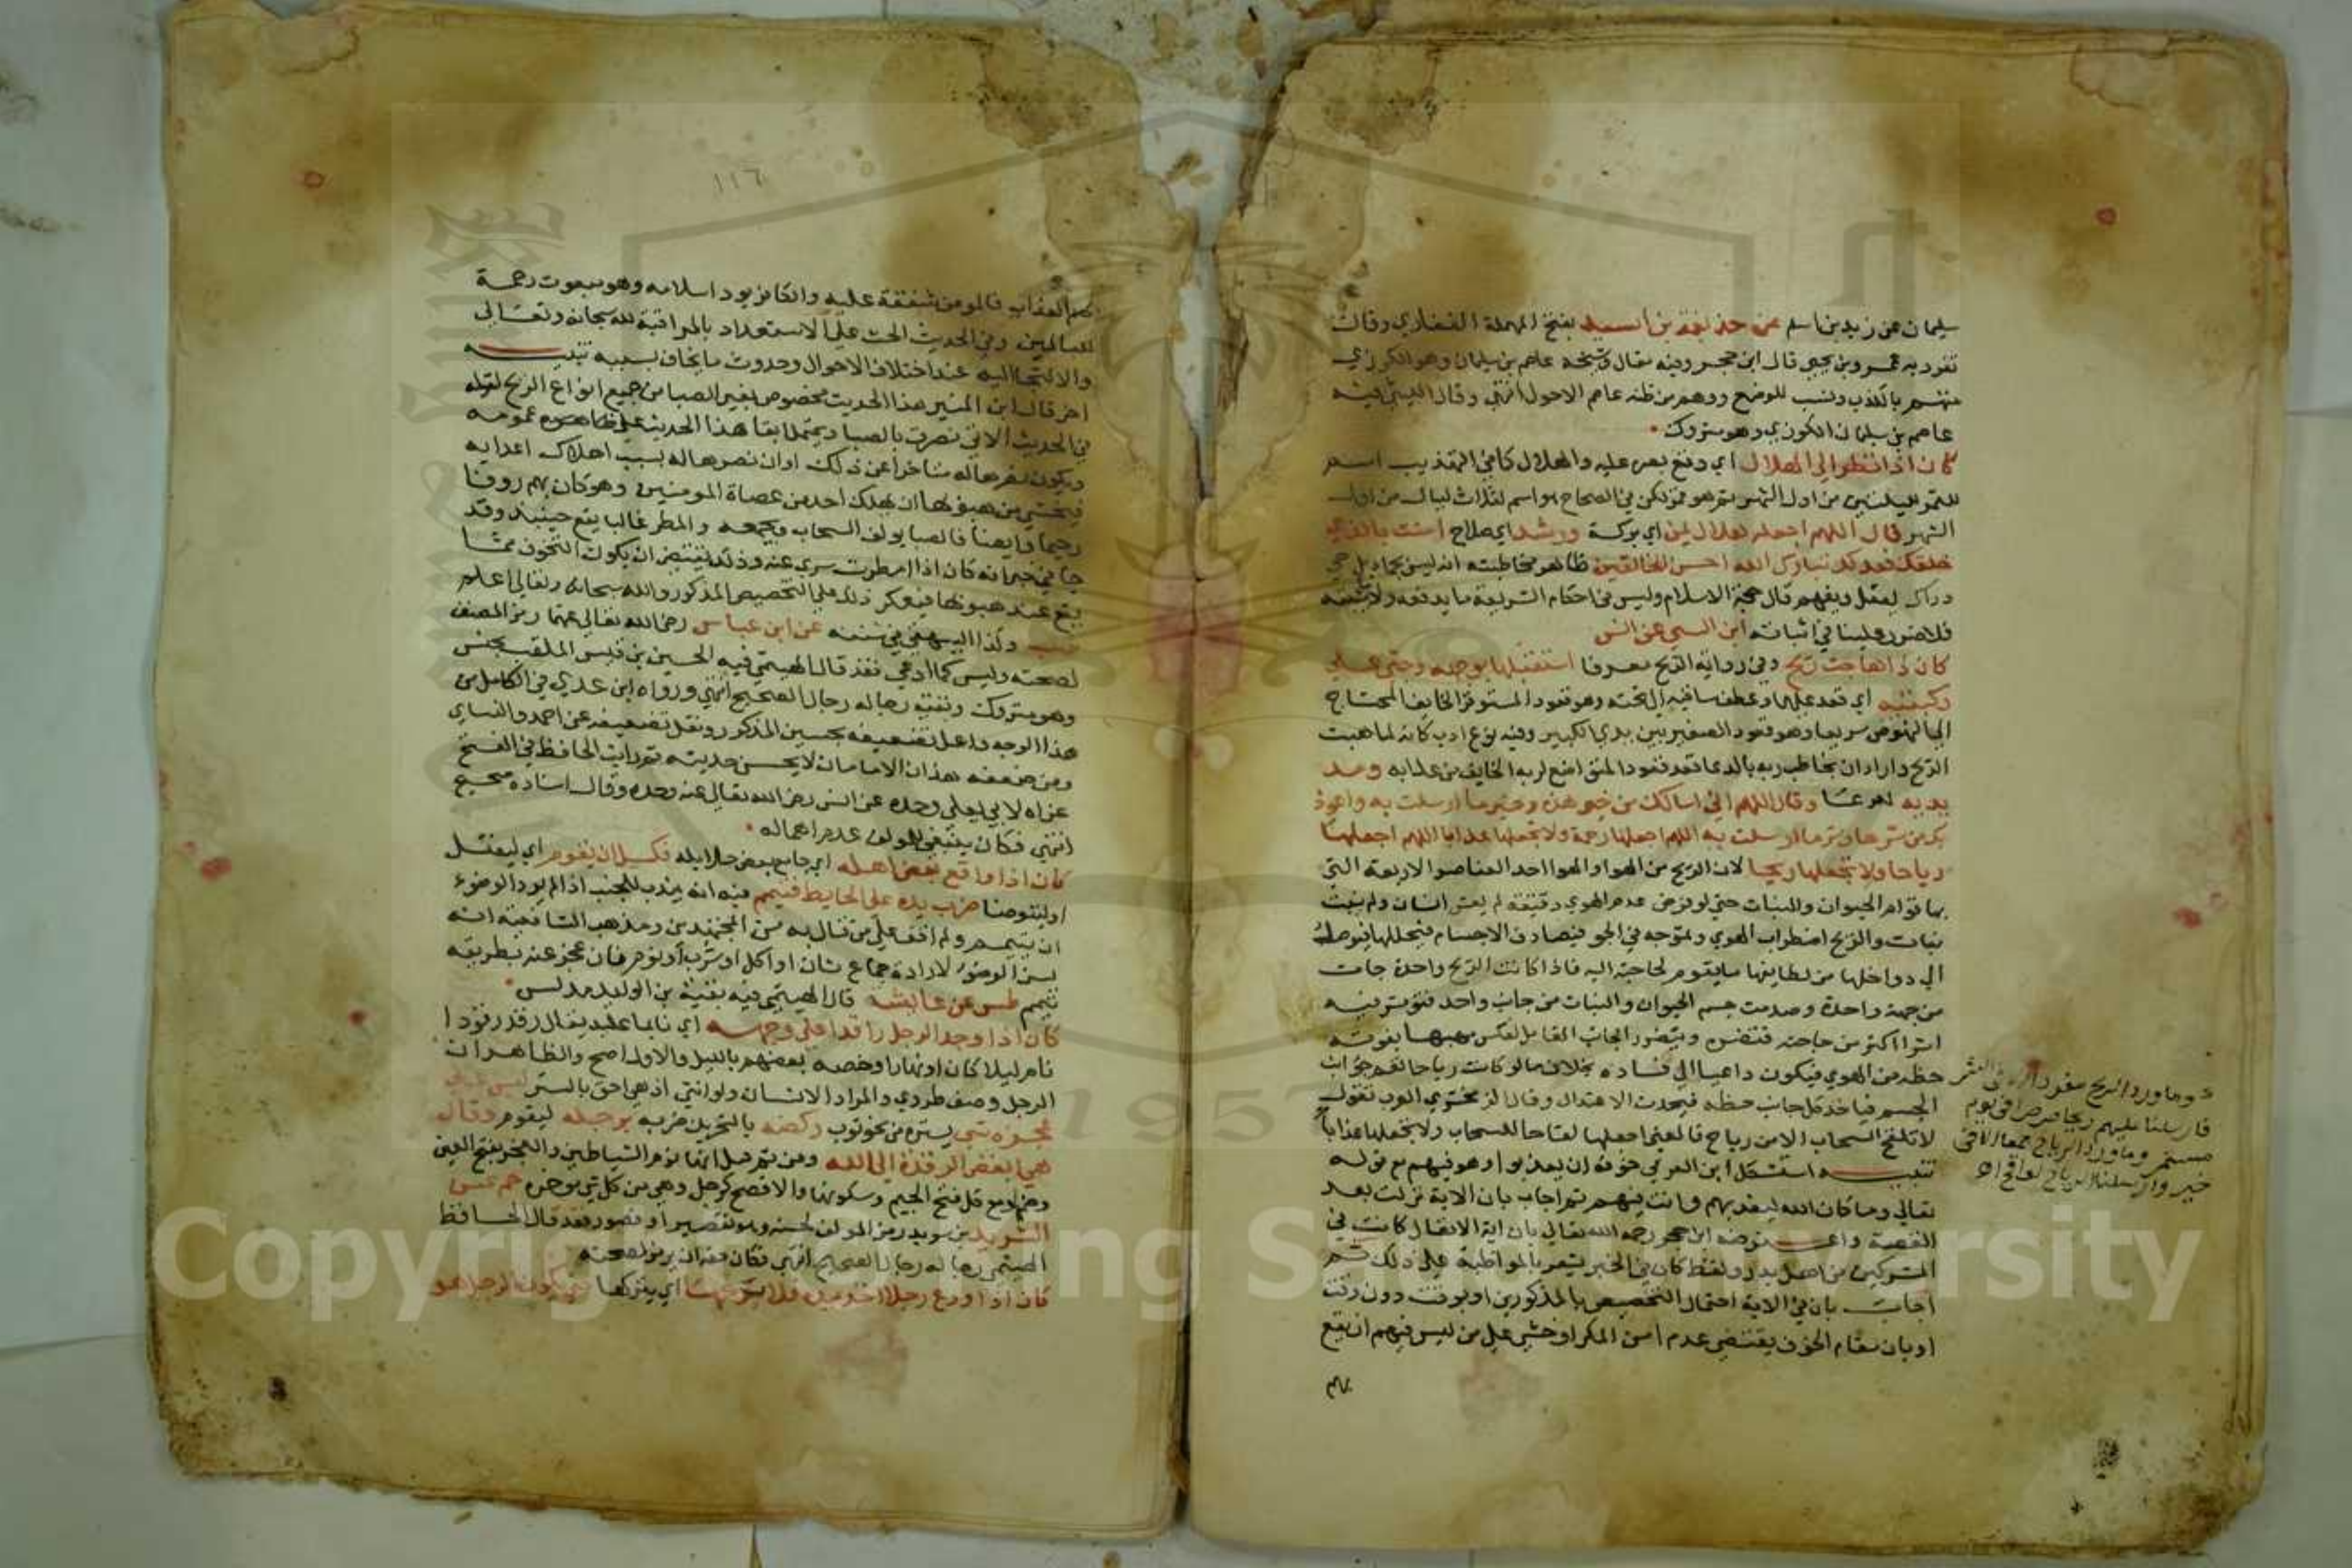 سليمان عن زيد بن اسلم عن حذيفة بن اسيد بفتح المهملة الغفاري وقال
تفرد به عمرو بن يحيى قال ابن حجر وفيه مقال وشيخه عاصم بن سليمان وهو الكوزي
متهم بالكذب ونسب للوضع ووهم من ظنه عاصم الاحول انتهى وقال الهيثمي فيه
عاصم بن سليمان الكوزي وهو متروك
كان اذا نظر الى الهلال اي وقع بصره عليه والهلال كما في التهذيب اسم
للقمر لليلتين من اول الشهر ثم هو قمر لكن في الصحاح هو اسم لثلاث ليال من اول
الشهر قال اللهم اجعله هلال يمن اي بركة ورشد اي صلاح امنت بالذي
خلقك فعدلك تبارك الله احسن الخالقين ظاهر مخاطبته انه ليس بجماد بل حي
دراك يعقل ويفهم قال حجة الاسلام وليس في احكام الشريعة ما يدفعه ولا يثبته
فلا ضرر علينا في اثباته ابن السني عن انس
كان اذا هاجت ريح وفي رواية الريح معرفا استقبلها بوجهه وجثى على
ركبتيه اي قعد عليها وعطف ساقيه الى تحته وهو قعود المستوفز الخايف المحتاج
الى النهوض سريعا وهو قعود الصغير بين يدي الكبير وفيه نوع ادب كانه لما هبت
الريح واراد ان يخاطب ربه بالدعا قعد قعود المتواضع لربه الخايف من عذابه ومد
يديه للدعا وقال اللهم اني اسالك من خير هذه وخير ما ارسلت به واعوذ
بك من شرها وشر ما ارسلت به اللهم اجعلها رحمة ولا تجعلها عذابا اللهم اجعلها
رياحا ولا تجعلها ريحا لان الريح من الهوا والهوا احد العناصر الاربعة التي
بها قوام الحيوان والنبات حتى لو فرض عدم الهوى دقيقة لم يعش انسان ولم ينبت
نبات والريح اضطراب الهوى وتموجه في الجو فيصادف الاجسام فيحللها فيوصل
الى دواخلها من لطايفها ما يقوم لحاجته اليه فاذا كانت الريح واحدة جات
من جهة واحدة وصدمت جسم الحيوان والنبات من جانب واحد فتؤثر فيه
اثرا اكثر من حاجته فتضره ويتضرر الجانب المقابل لعكس مهبها بفوته
حظه من الهوى فيكون داعيا الى فساده بخلاف ما لو كانت رياحا تعم جوانب
الجسم فياخذ كل جانب حظه فيحدث الاعتدال وقال الزمخشري العرب تقول
لا تلقح السحاب الا من رياح فالمعنى اجعلها لقاحا للسحاب ولا تجعلها عذابا
تنبيه استشكل ابن العربي خوفه ان يعذبوا وهو فيهم مع قوله
تعالى وما كان الله ليعذبهم وانت فيهم ثم اجاب بان الاية نزلت بعد
القصة واعترضه ابن حجر رحمه الله تعالى بان اية الانفال كانت في
المشركين من اهل بدر ولفظ كان في الخبر يشعر بالمواظبة على ذلك ثم
اجاب بان في الاية احتمال التخصيص بالمذكورين او بوقت دون وقت
او بان مقام الخوف يقتضي عدم امن المكر او خشى على من ليس فيهم ان يقع
بهم
وما ورد الريح مفردا في الشر
فارسلنا عليهم ريحا صرصرا في يوم
مستمر وما ورد الرياح جمعا الا في
خير وارسلنا الرياح لواقح اهـ
١١٦
بهم العذاب فالمومن شفقة عليه والكافر يود اسلامه وهو مبعوث رحمة
للعالمين وفي الحديث الحث على الاستعداد بالمراقبة لله سبحانه وتعالى
والالتجا اليه عند اختلاف الاحوال وحدوث ما يخاف بسببه تنبيه
اخر قال ابن المنير هذا الحديث مخصوص بغير الصبا من جميع انواع الريح لقوله
في الحديث الاتي نصرت بالصبا ويحتمل ابقا هذا الحديث على ظاهره عمومه
ويكون نصرها له متاخرا عن ذلك او ان نصرها له بسبب اهلاك اعدايه
فيخشى من هبوبها ان يهلك احد من عصاة المومنين وهو كان بهم روفا
رحيما وايضا فالصبا يولف السحاب ويجمعه والمطر غالبا يقع حينيذ وقد
جا في خبر انه كان اذا امطرت سري عنه وذلك يقتضي ان يكون التخوف مما
يقع عند هبوبها فيعكر ذلك على التخصيص المذكور والله سبحانه وتعالى اعلم
طب وكذا البيهقي في سننه عن ابن عباس رضي الله تعالى عنهما رمز المصنف
لصحته وليس كما ادعى فقد قال الهيثمي فيه الحسين بن قيس الملقب بحنش
وهو متروك وبقية رجاله رجال الصحيح انتهى ورواه ابن عدي في الكامل من
هذا الوجه واعله بتضعيفه بحسين المذكور ونقل تضعيفه عن احمد والنساي
ومن ضعفه هذان الامامان لا يحسن حديثه ثم رايت الحافظ في الفتح
عزاه لابي يعلى وحده عن انس رضي الله تعالى عنه وحده وقال اسناده صحيح
انتهى فكان ينبغي للمولف عدم اهماله
كان اذا واقع بعض اهله اي جامع بعض حلايله فكسل ان يقوم اي ليغتسل
او ليتوضا ضرب يده على الحايط فتيمم فيه انه يندب للجنب اذا لم يرد الوضوء
ان يتيمم ولم اقف على من قال به من المجتهدين ومذهب الشافعية انه
يسن الوضوء لارادة جماع ثان او اكل او شرب او نوم فان عجز عنه بطريقه
تيمم طس عن عايشة قال الهيثمي فيه بقية بن الوليد مدلس
كان اذا وجد الرجل راقدا على وجهه اي نايما عليه يقال رقد رقودا
نام ليلا كان او نهارا وخصه بعضهم بالليل والاول اصح والظاهر ان
الرجل وصف طردي والمراد الانسان ولو انثى اذ هي احق بالستر ليس على
عجزه شي يستره من نحو ثوب ركضه بالتحريك ضربه برجله ليقوم وقال
هي ابغض الرقدة الى الله ومن ثم قيل انها نوم الشياطين والعجز بفتح العين
وضمها ومع كل فتح الجيم وسكونها والافصح كرجل وهي من كل شي موخره حم عن
الشريد بن سويد رمز المولف لحسنه وهو تقصير او قصور فقد قال الحافظ
الهيثمي رجاله رجال الصحيح انتهى فكان حقه ان يرمز لصحته
كان اذا ودع رجلا اخذ بيده فلا ينزعها اي يتركها حتى يكون الرجل هو
Copyright © King Saud University
1957